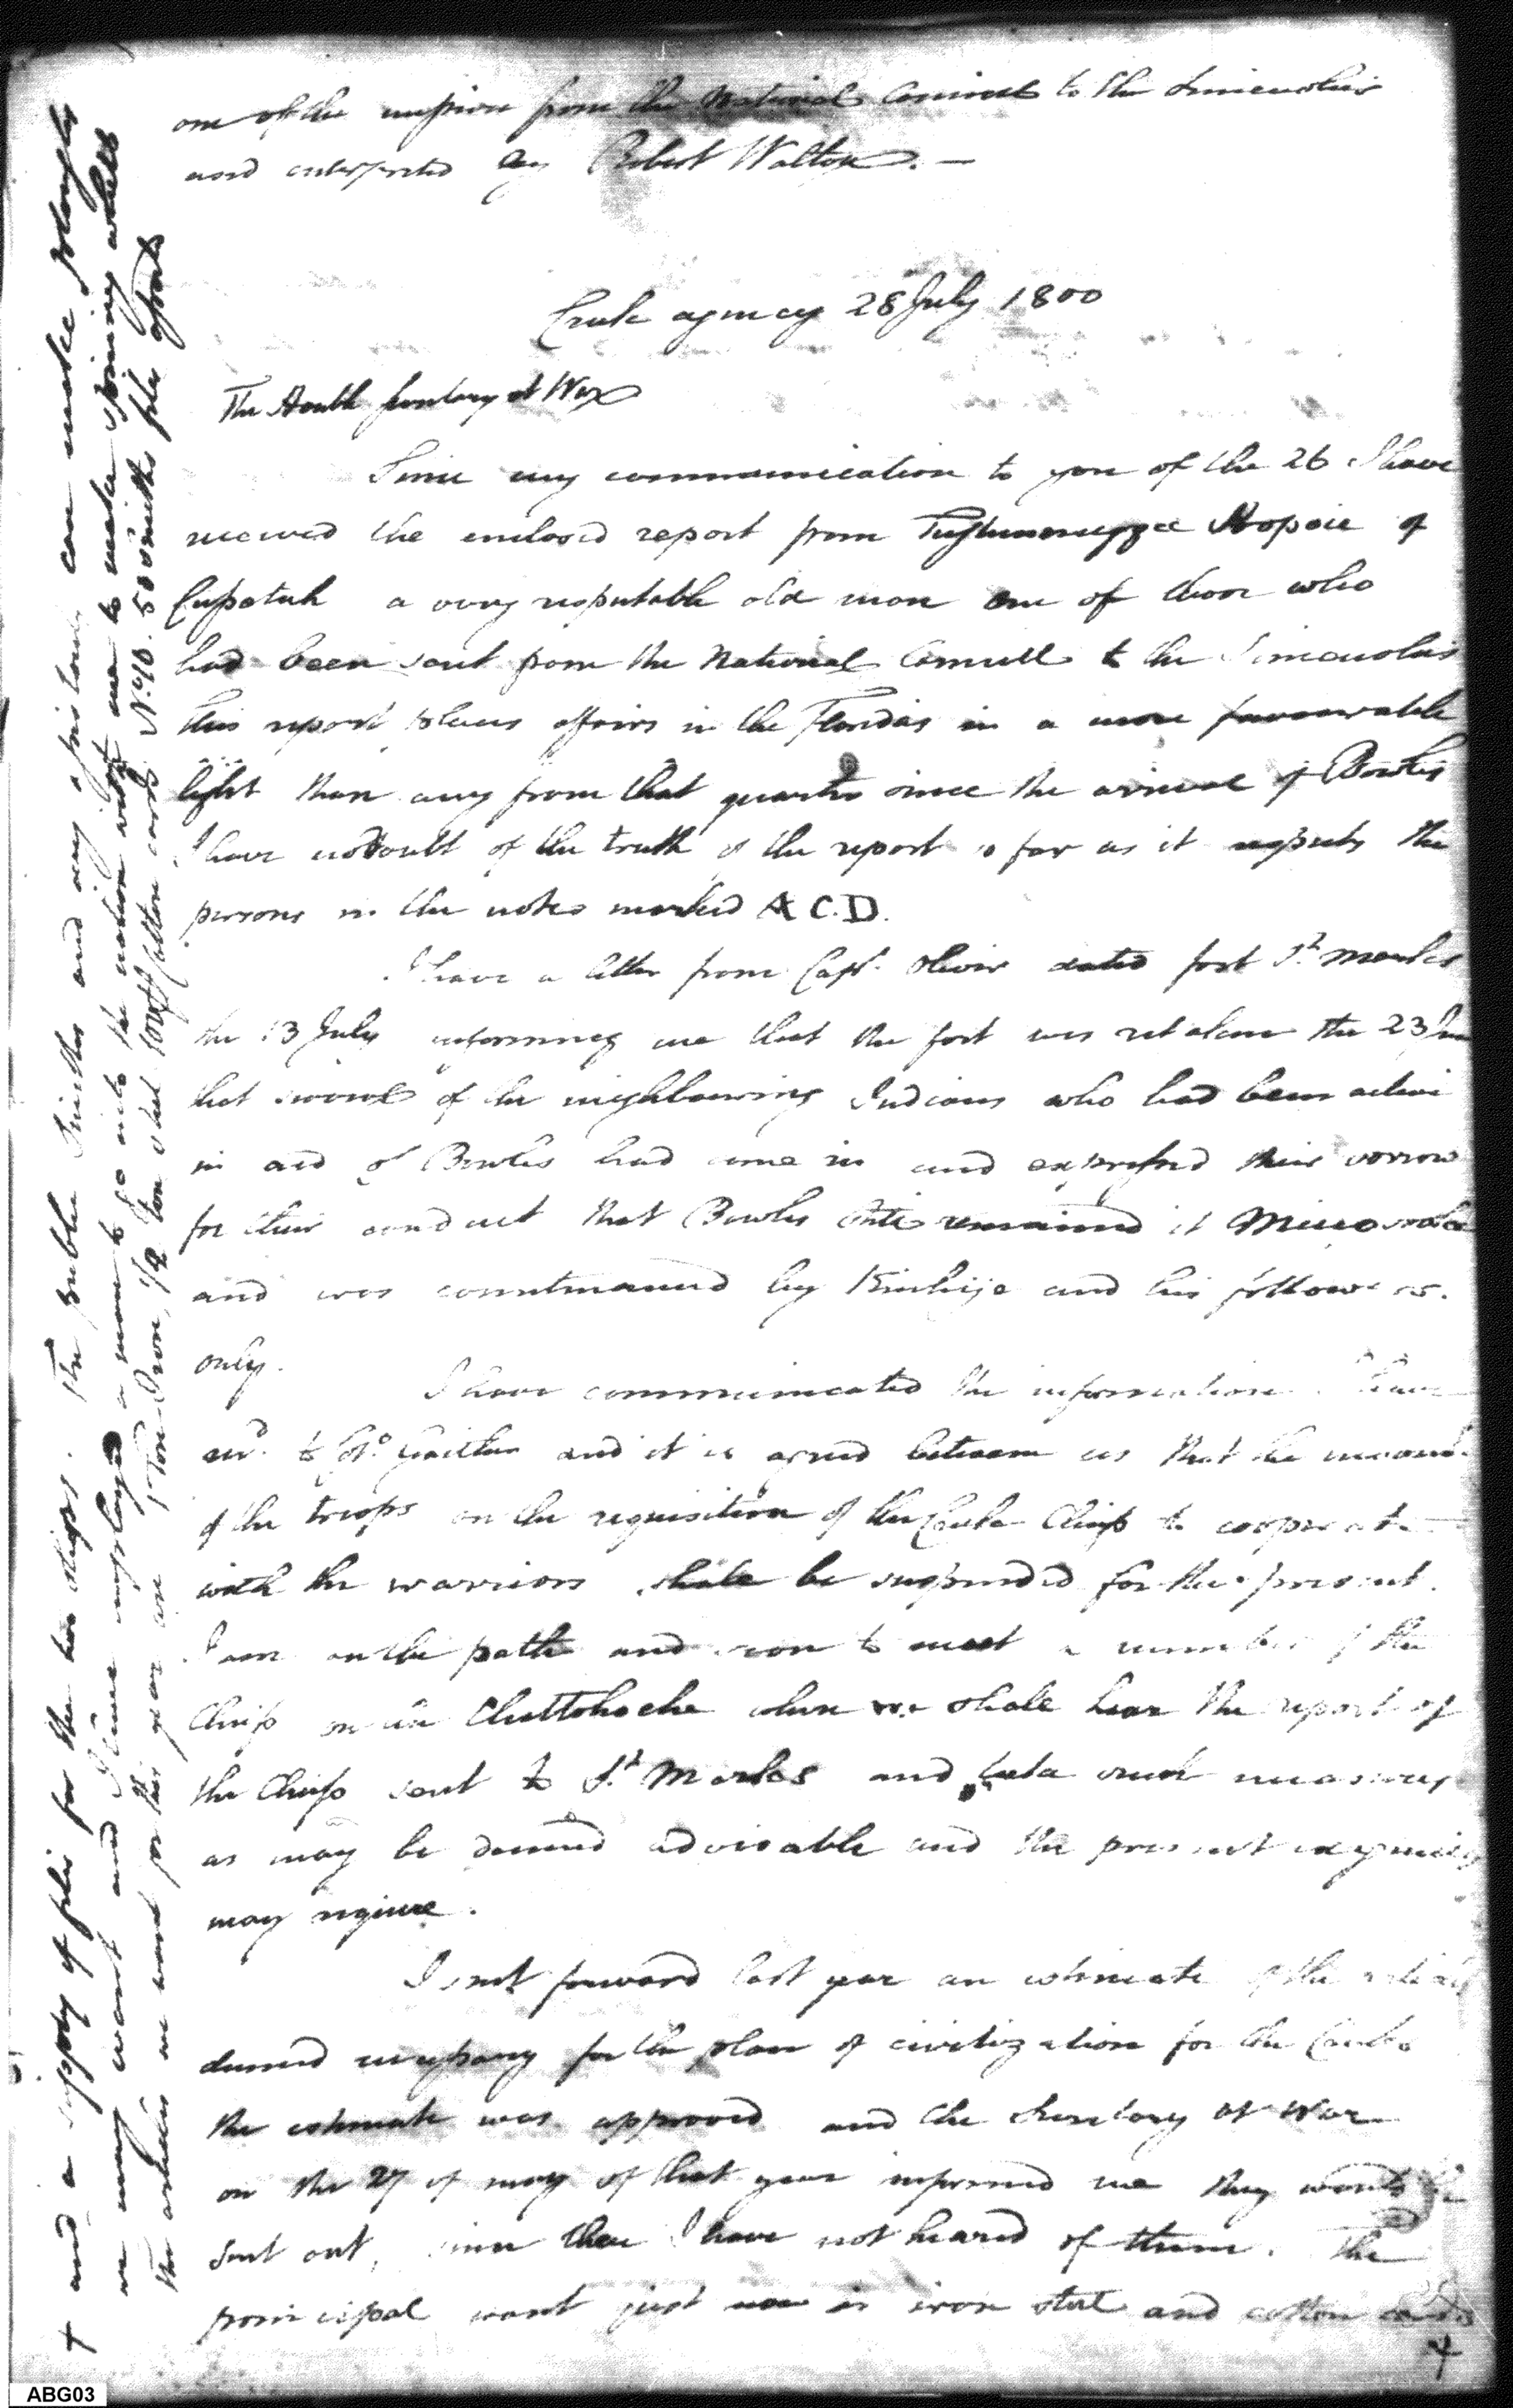 one of the mission from the National Council to the Simenolies
and interpreted by Robert Walton. —
Creek agency 28 July 1800
The Honble Secretary of War
Since my communication to you of the 26 I have
received the enclosed report from Tustunnuggee Hopoie of
Cupetuh a very reputable old man one of those who
had been sent from the National Council to the Simenolies
this report places affairs in the Floridas in a more favourable
light than any from that quarter since the arrival of Bowles
I have no doubt of the truth of the report so far as it respects the
persons in the notes marked A C. D.
I have a letter from Capt. Olivir dated fort St. Marks
the 13 July informing me that the fort was retaken the 23 June
that several of the neighbouring Indians who had been active
in aid of Bowles had come in and expressed their sorrow
for their conduct that Bowles still remained at
and was countenanced by Kinhije and his followers
only.
I have communicated the information I have
recd. to Col. Gaither and it is agreed between us that the movement
of the troops on the requisition of the Creek Chiefs to cooperate
with the warriors shall be suspended for the present.
I am on the path and soon to meet a number of the
Chiefs on the Chattohoche when we shall hear the report of
the Chiefs sent to St. Marks and take such measures
as may be deemed advisable and the present exigencies
may require.
I sent forward last year an estimate of the articles
deemed necessary for the plan of civilization for the Creeks
the estimate was approved and the Secretary of War
on the 27 of may of that year informed me they would be
sent out, since then I have not heared of them. The
principal want just now is iron steel and cotton cards
+
+ and a supply of files for the two shops. The public Smiths and any assistance can make ploughs
we may want and I have employed a man to go into the nation with me to make spinning wheels
the articles we want for this year are 1 Ton Iron, 1/2 ton steel Cotton cards No. 10. 50 smiths files assorted
ABG03